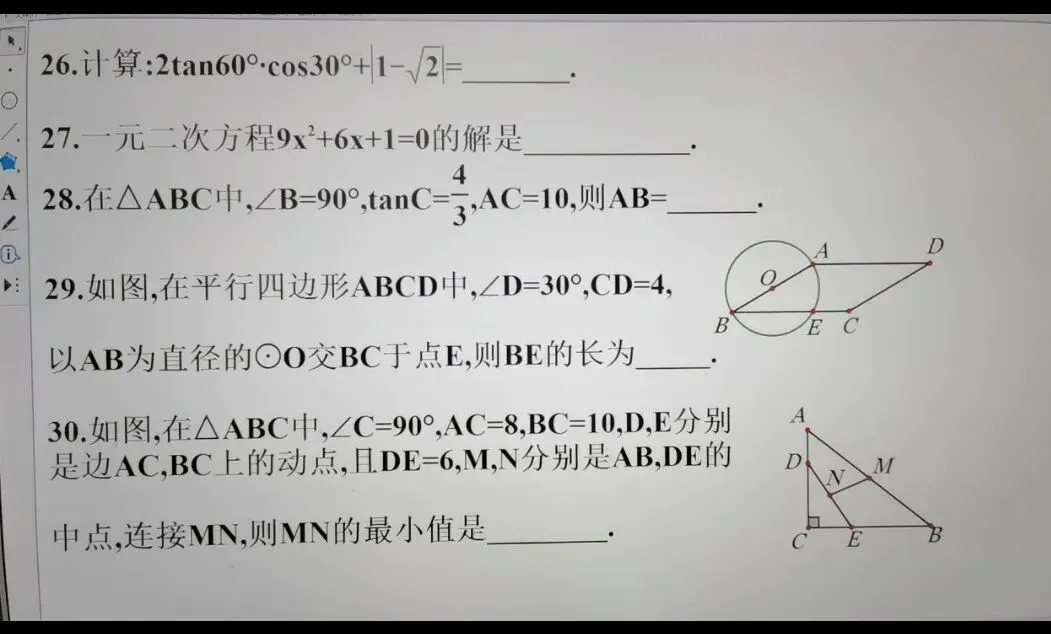 26.计算:2tan60°·cos30°+|1-√2|=________.
27.一元二次方程9x²+6x+1=0的解是____________.
28.在△ABC中,∠B=90°,tanC=4/3,AC=10,则AB=______.
29.如图,在平行四边形ABCD中,∠D=30°,CD=4,
以AB为直径的⊙O交BC于点E,则BE的长为_____.
A
D
O
B
E
C
30.如图,在△ABC中,∠C=90°,AC=8,BC=10,D,E分别
是边AC,BC上的动点,且DE=6,M,N分别是AB,DE的
中点,连接MN,则MN的最小值是________.
A
D
N
M
C
E
B
A